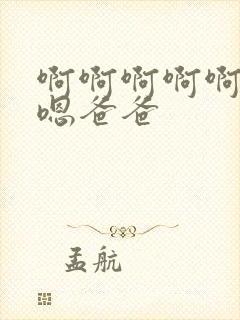 啊啊啊啊啊
嗯爸爸
孟航